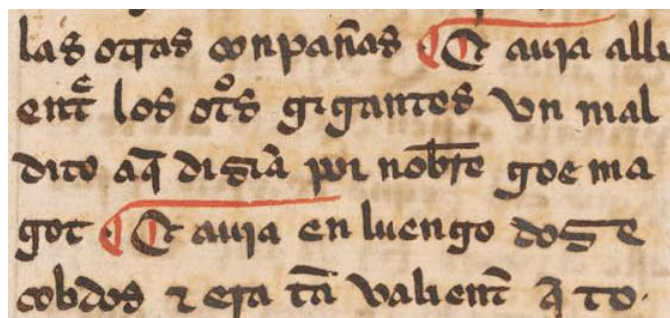 las otras conpañas ¶ Et auia alli
entͤ los otͦs gigantes vn mal
dito aq̃ diziã por nob̃re goe ma
got ¶ Et auia en luengo doze
cobdos ⁊ era tã valient̃ q̃ to